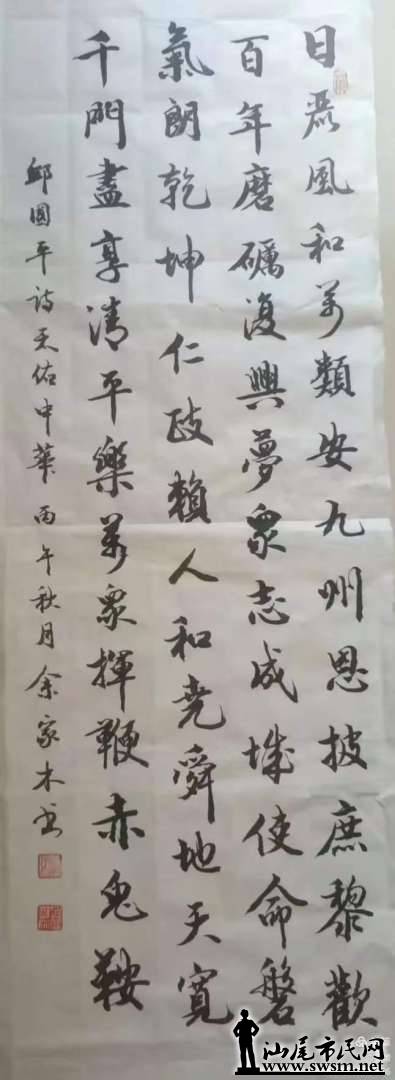 日麗風和萬類安九州恩披庶黎歡
百年磨礪復興夢眾志成城使命磐
氣朗乾坤仁政賴人和堯舜地天寬
千門盡享清平樂萬眾揮鞭赤兔鞍
邱國平詩天佑中華丙午秋月余家木書
汕尾市民网
www.swsm.net